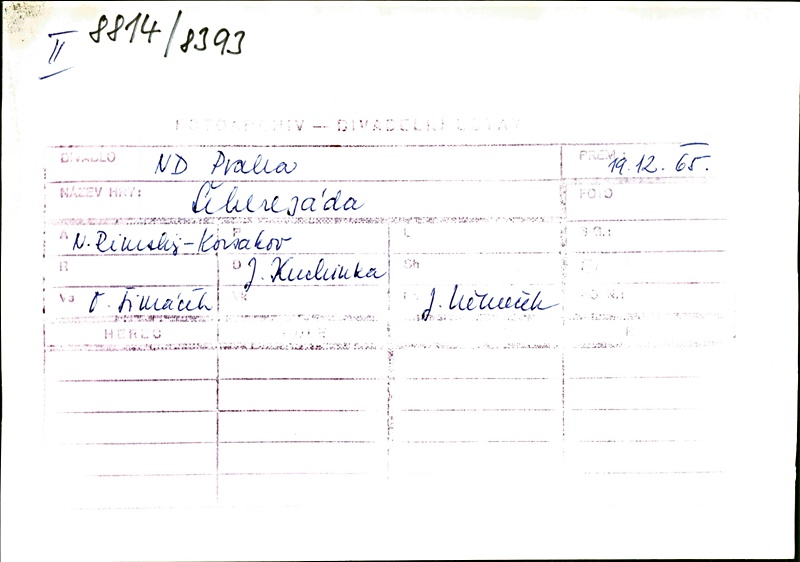 II 8814/8393
FOTOARCHIV — DIVADELNÍ ÚSTAV
DIVADLO ND Praha PREM.: 19.12.65.
NÁZEV HRY: Šeherezáda FOTO
A N. Rimskij-Korsakov P L
R D J. Kuchinka Sh
Vs O. Šimáček J. Němeček
HEREC